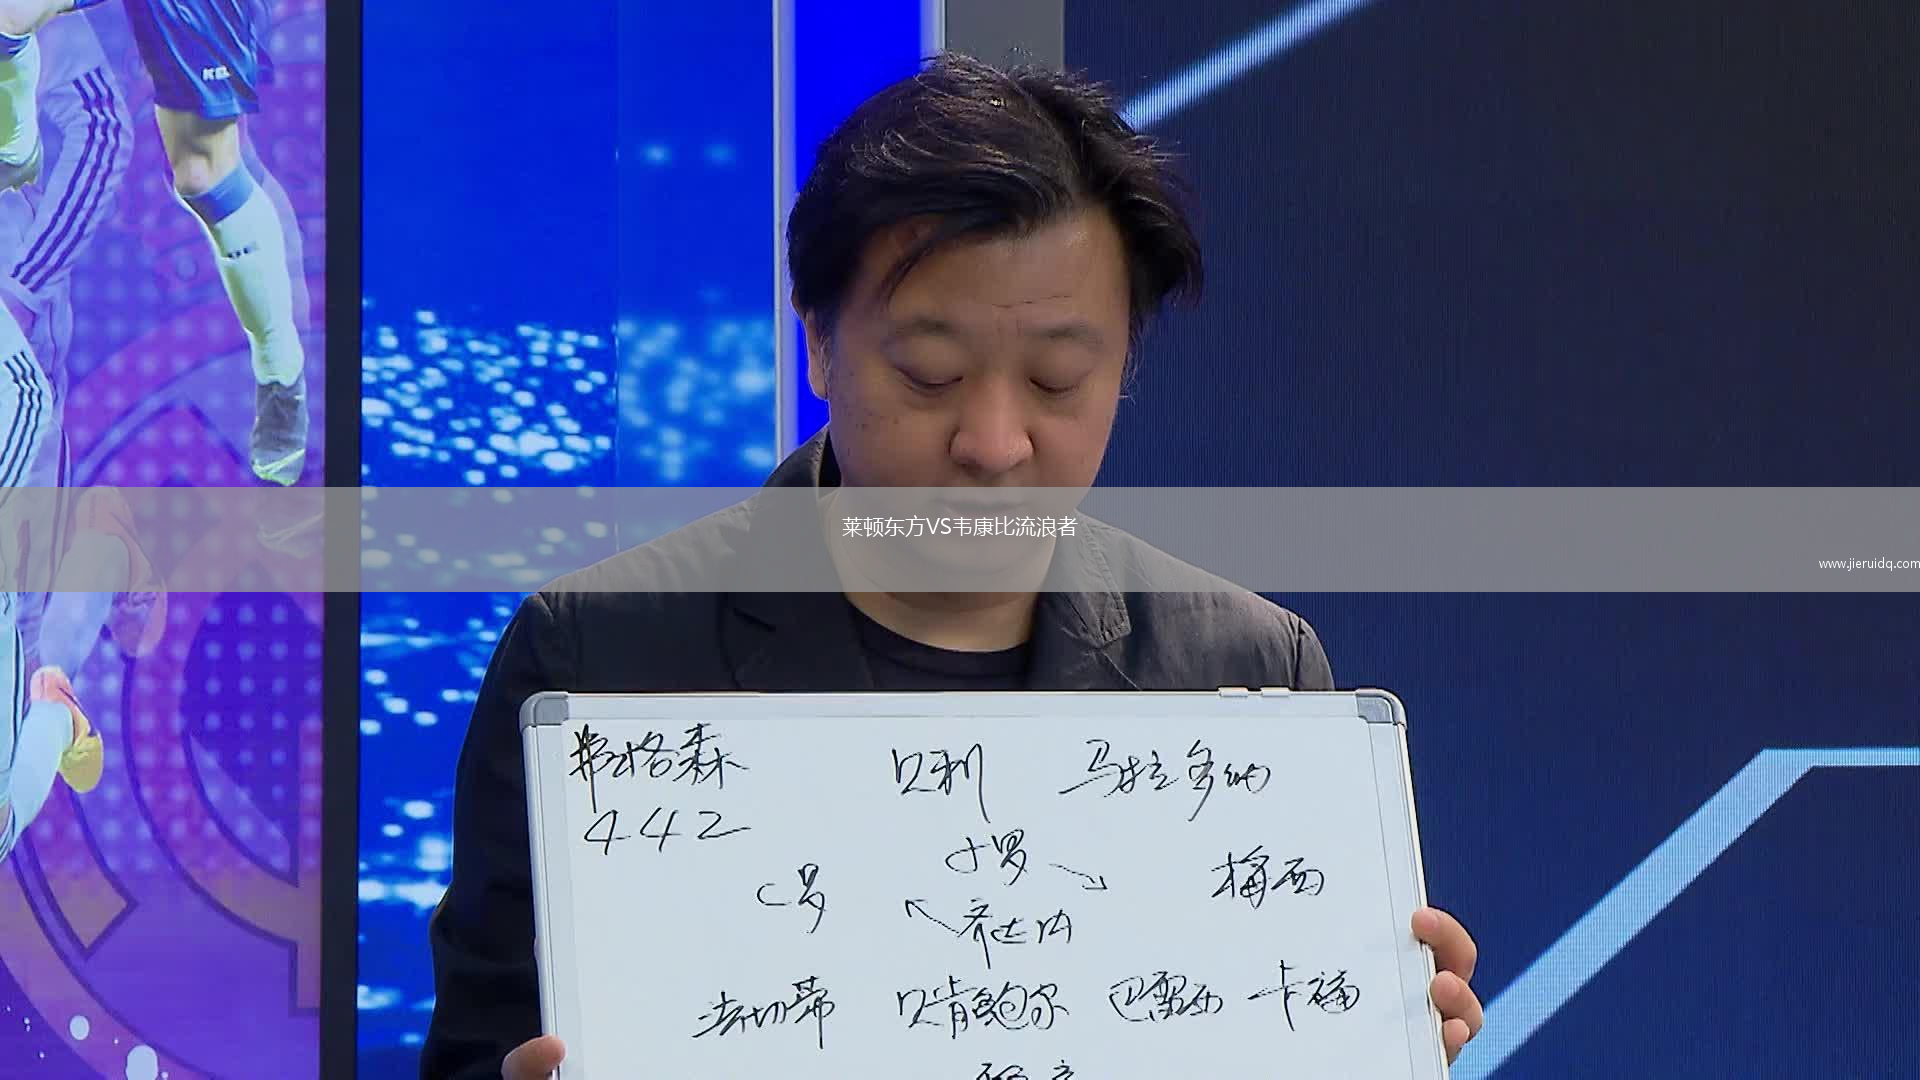 KEL
莱顿东方VS韦康比流浪者
www.jieruidq.com
弗格森 贝利 马拉多纳
442
小罗
C罗 梅西
齐达内
法切蒂 贝肯鲍尔 巴雷西 卡福